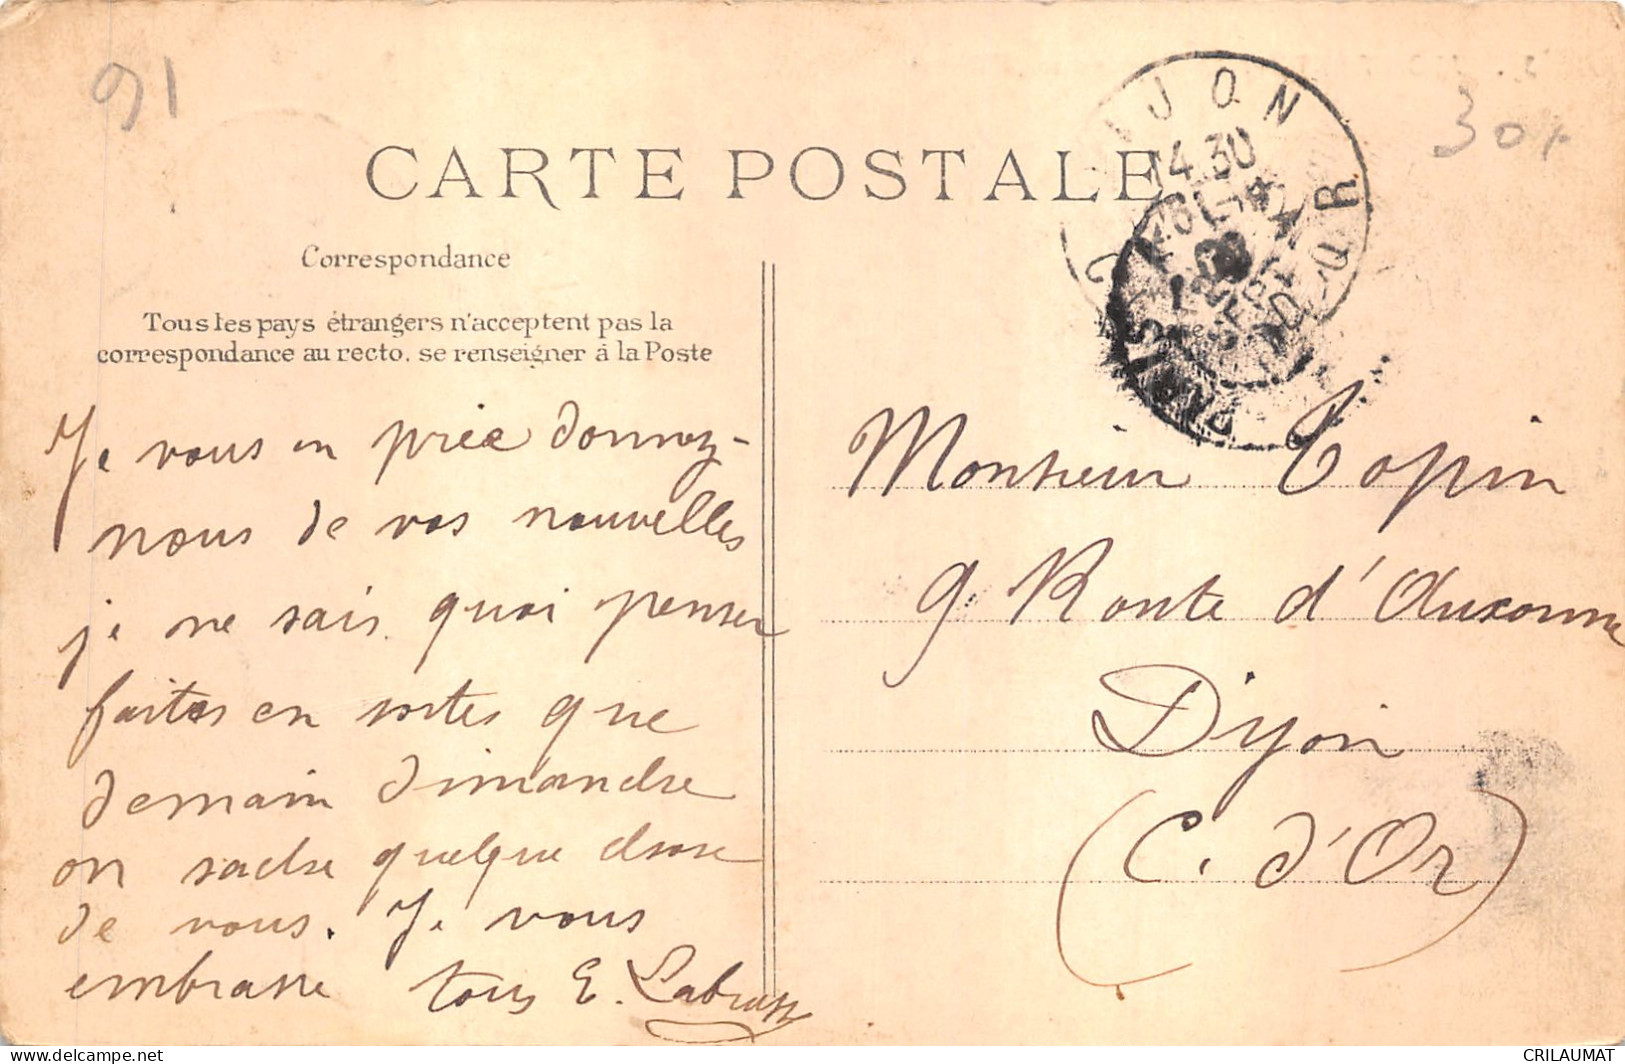 91
30x
CARTE POSTALE
Correspondance
Tous les pays étrangers n'acceptent pas la
correspondance au recto. se renseigner à la Poste
Je vous en prie donnez-
nous de vos nouvelles
je ne sais quoi penser
faites en sortes que
demain dimandre
on sache quelque chose
de vous. Je vous
embrasse tous E.
DIJON
14 30
COTE D'OR
PARIS
Monsieur Topin
9 Route d'Auxonne
Dijon
(C. d'Or)
www.delcampe.net
CRILAUMAT